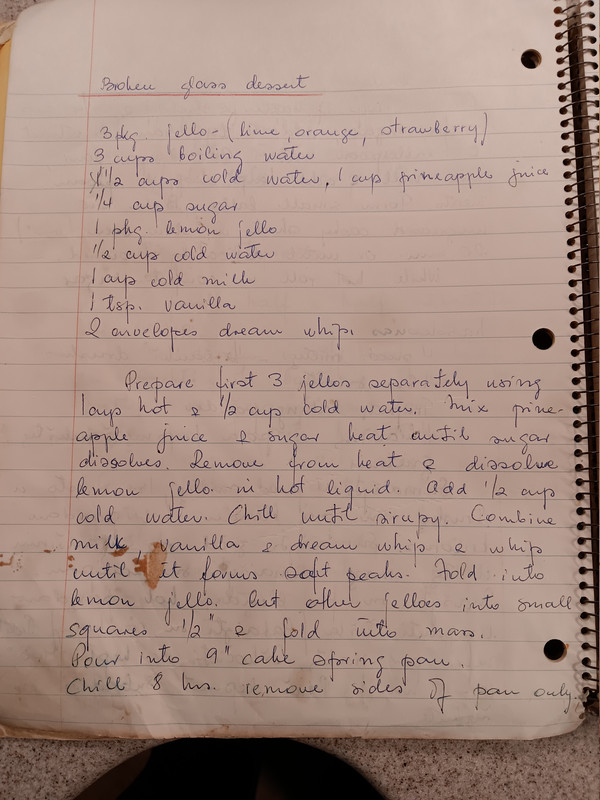 Broken glass dessert
3 pkg. jello - (lime, orange, strawberry)
3 cups boiling water
1 1/2 cups cold water, 1 cup pineapple juice
1/4 cup sugar
1 pkg. lemon jello
1/2 cup cold water
1 cup cold milk
1 tsp. vanilla
2 envelopes dream whip.
Prepare first 3 jellos separately using
1 cup hot & 1/2 cup cold water. Mix pine-
apple juice & sugar heat until sugar
dissolves. Remove from heat & dissolve
lemon jello in hot liquid. Add 1/2 cup
cold water. Chill until sirupy. Combine
milk, vanilla & dream whip & whip
until it forms soft peaks. Fold into
lemon jello. Cut other jelloes into small
squares 1/2" & fold into mass.
Pour into 9" cake spring pan.
Chill 8 hrs. remove sides of pan only.